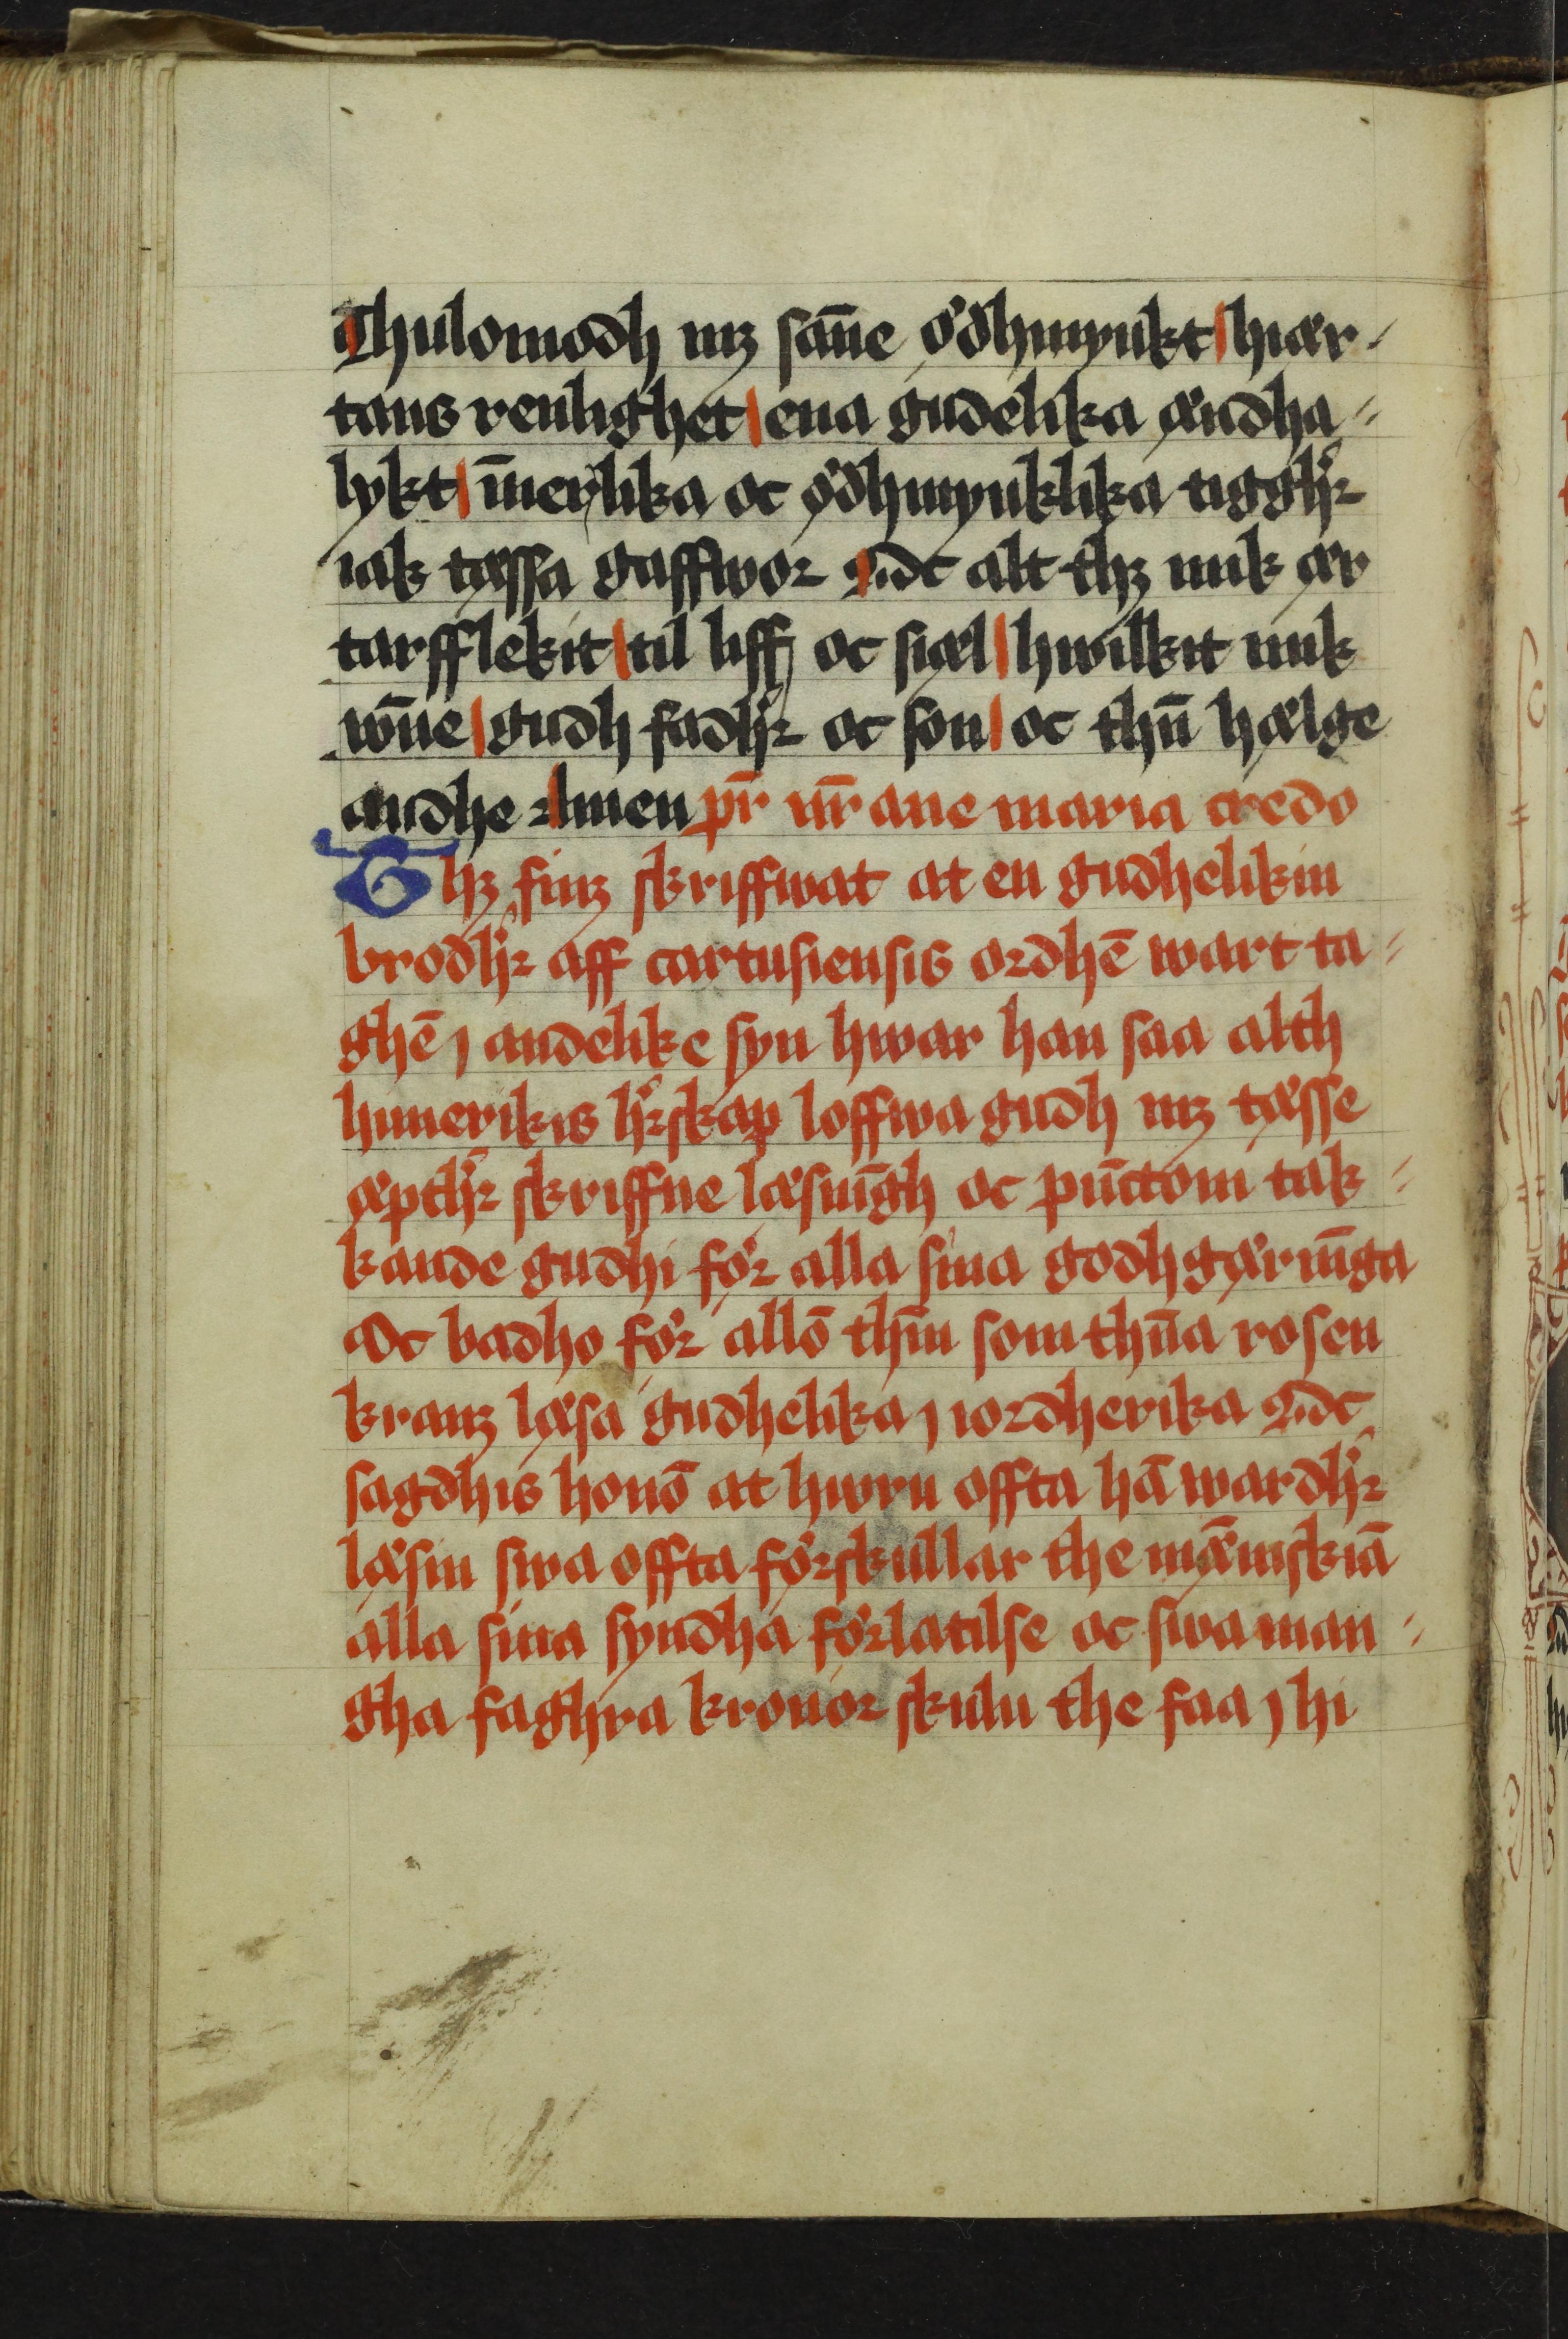 Thulomodh mz sāne ødhmywkt hiær-
tans renlighet ena gudelika ændha-
lykt īnerlika oc ødhmywklika tiggh̓r
iak tæssa gaffwor Oc alt thz mik ær
tarfflekit til liff oc siæl hwilkit mik
wn̄e gudh fadh̓r oc son oc thn̄ hælge
andhe Amen pr̄ nr̄ aue maria credo
Thz finz skriffwat at en gudhelikin
brodh̓r aff cartusiensis ordhē wart ta-
ghē j andelike syn hwar han saa alth
himerikis h̓rskap loffwa gudh mz tæsse
æpth̓r skriffne læsnīgh oc pūctom tak-
kande gudhi før alla sina godhgærnīga
Oc badho før allō thm̄ som thn̄a rosen
kranz læsa gudhelika j iordherika Oc
sagdhis honō at hwru offta hā wardh̓r
læsin swa offta førskullar the mǣniskiā
alla sina syndha førlatilse oc swa man-
gha faghra kronor skulu the faa j hi